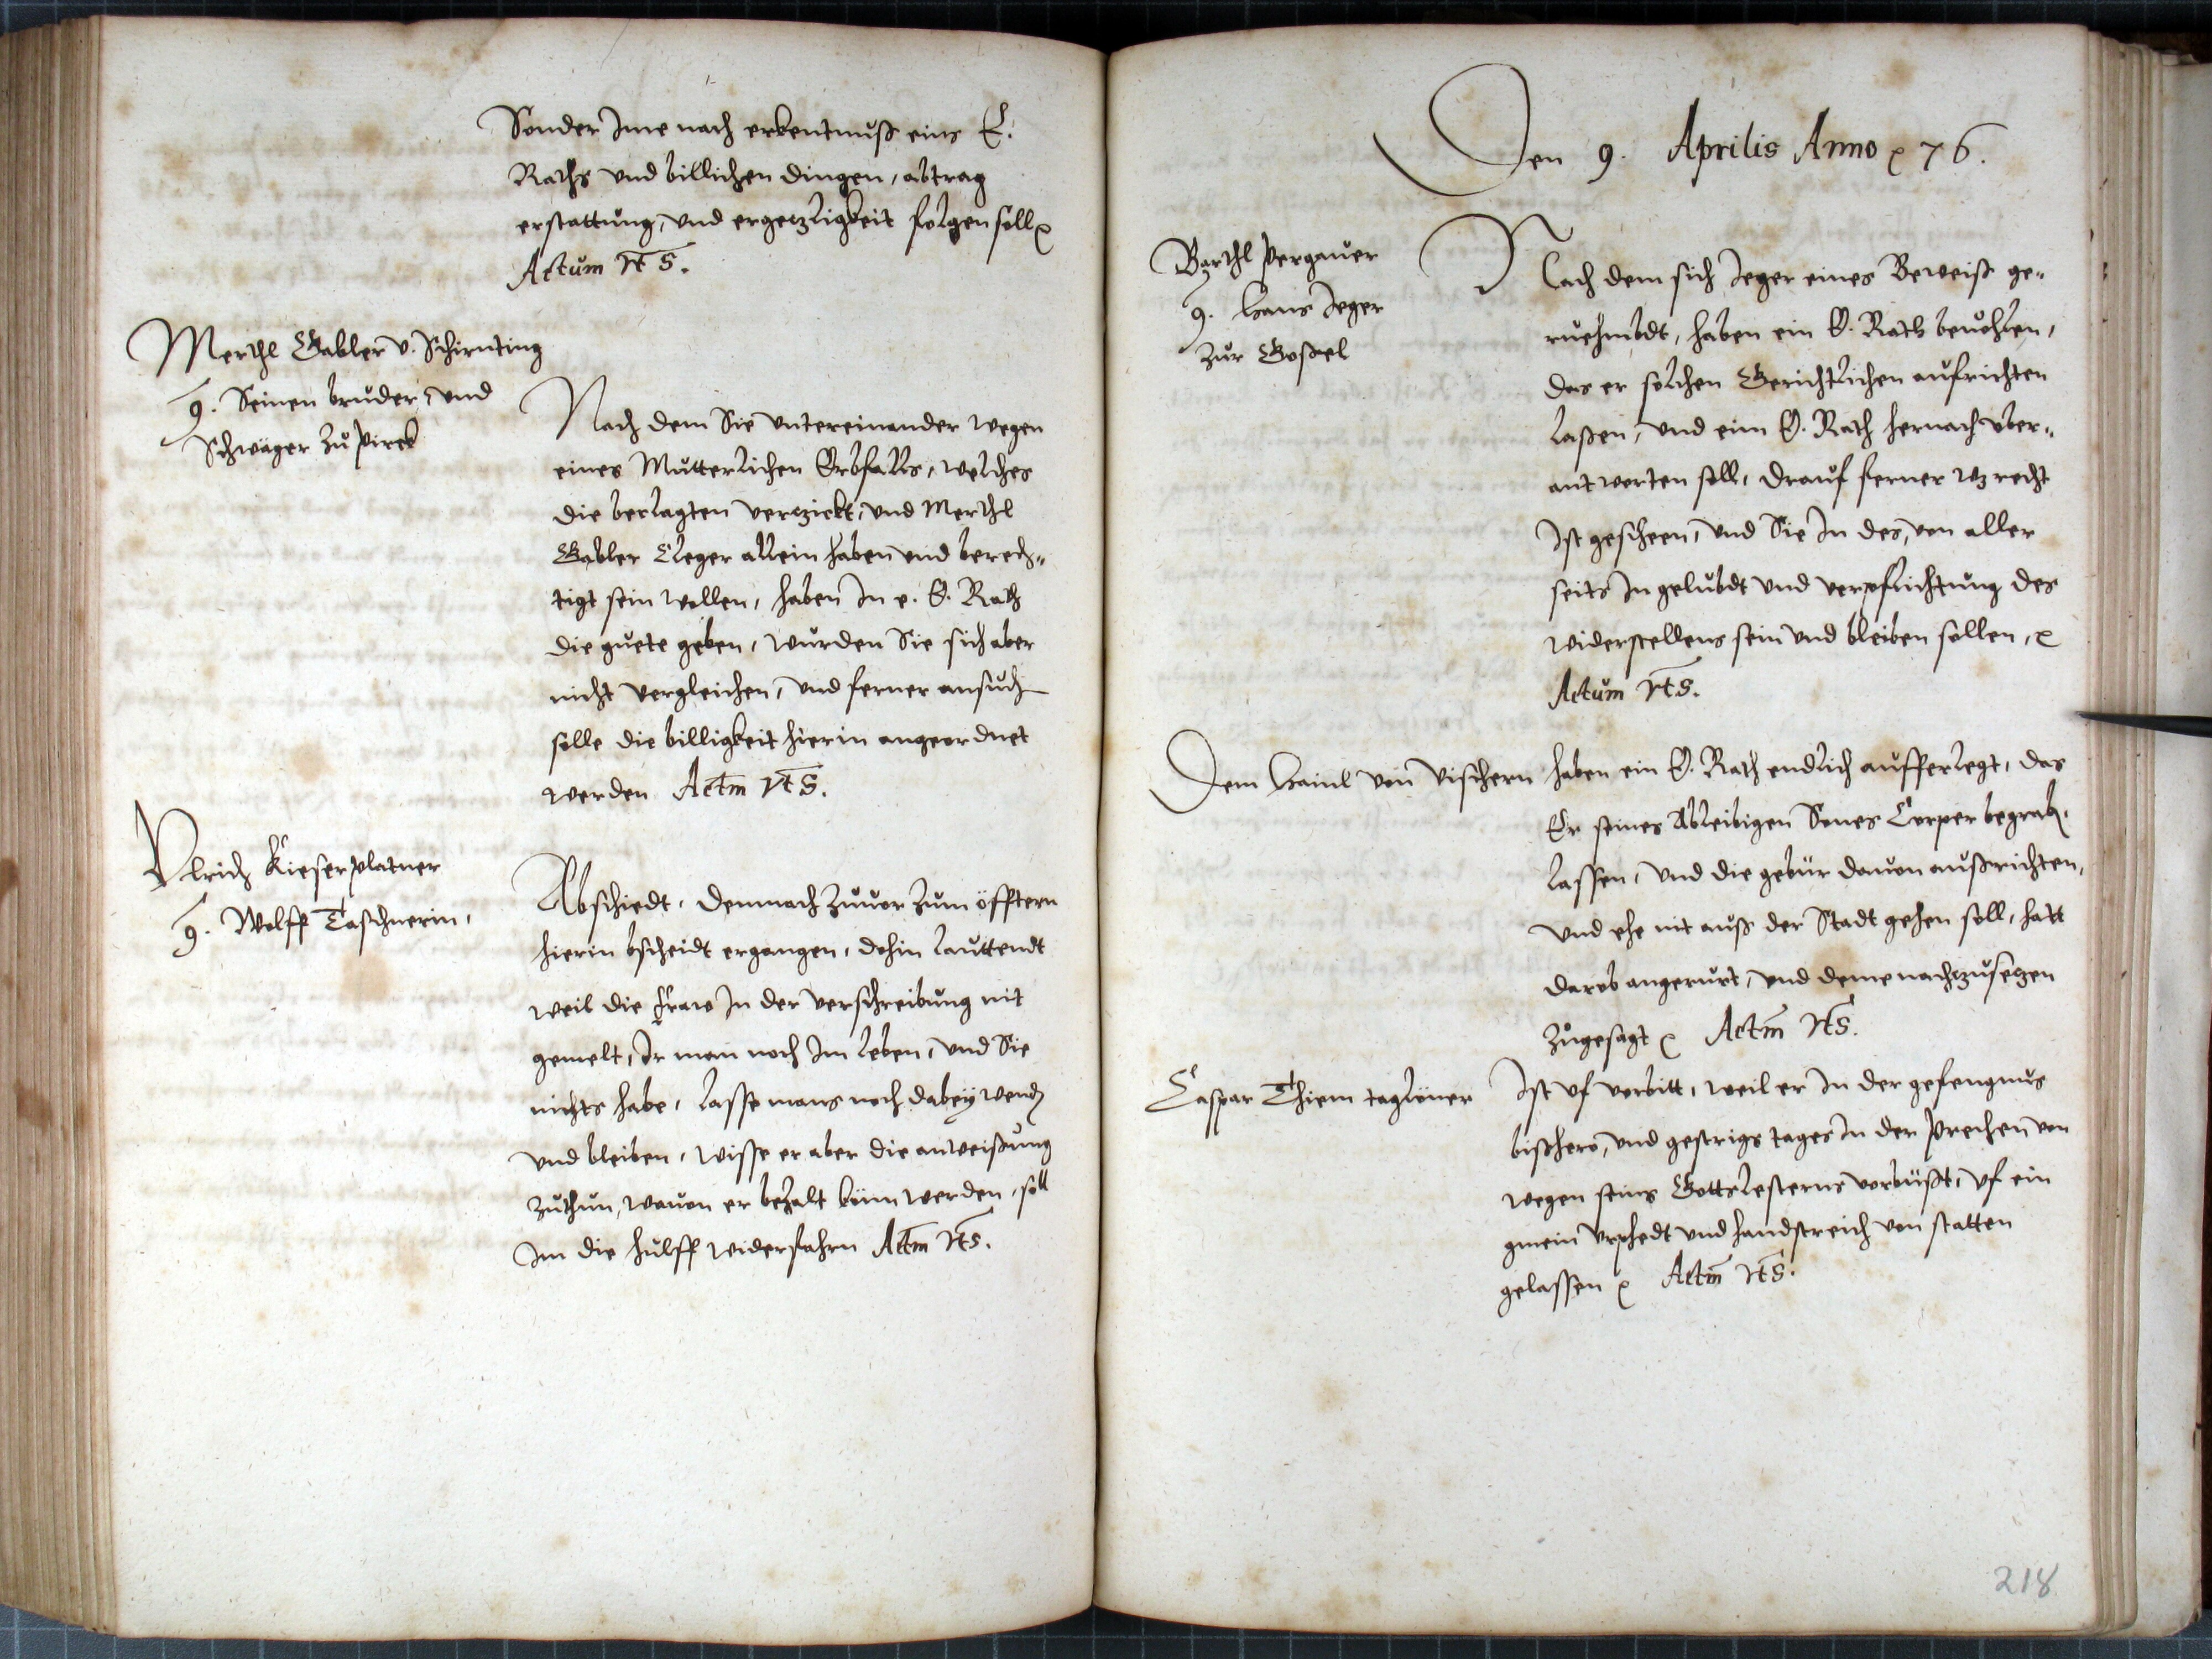 Sonder Ime nach erkentnuß eins E.
Raths vnd billichen dingen, abtrag
erstattung, vnd ergetzligkeit folgen soll
Actum vt S.
Merthl Gabler v. Schirnting
g. Seinen bruder, vnd
Schwäger zu Pirck
Nach dem Sie vntereinander wegen
eines Mutterlichen Erbfalls, welches
die beclagten verzickt, vnd Merthl
Gabler Cleger allein haben vnd berech-
tigt sein wollen, haben In e. E. Rath
die guete geben, wurden Sie sich aber
nicht vergleichen, vnd ferner ansuch
solle die billigkeit hierin angeordnet
werden Actm vt S.
Vlrich Kieser platner
g. Wolff Taschnerin,
Abschiedt, demnach zuuor zum öfftern
hierin bscheidt ergangen, dohin lauttendt
weil die fraw In der verschreibung nit
gemelt, Ir man noch Im leben, vnd Sie
nichts habe, lasse mans noch dabey wend
vnd bleiben, wisse er aber die anweißung
zuthun, wauon er bezalt könn werden, soll
Im die hulff widerfahrn Actm vt S.
Den 9. Aprilis Anno 76.
Barthl Pergauer
g. Hans Jeger
zur Goßel
Nach dem sich Jeger eines Beweiß ge-
ruehmbdt, haben ein E. Rath beuohlen,
das er solchen Gerichtlichen aufrichten
laßen, vnd eim E. Rath hernach vber-
antworten soll, drauf ferner wz recht
Ist gescheen, vnd Sie In des, von aller
seits In gelubdt vnd verpflichtung des
widerstellens sein vnd bleiben sollen,
Actum vt S.
Dem Hainl von Vischern haben ein E. Rath endlich aufferlegt, das
Er seines Ableibigen Sones Corper begrab.
lassen, vnd die gebür dauon außrichten,
vnd ehe nit auß der Stadt gehen soll, hatt
darob angerurt, vnd deme nachzusetzen
zugesagt Actm vt S.
Caspar Thiem taglöner Ist vf vorbitt, weil er In der gefengnus
bißhero, vnd gestrigs tages In der prechen von
wegen seins Gottslesterns verbüßt, vf ein
gmein vrphedt vnd handstreich von statten
gelassen Actm vt S.
218